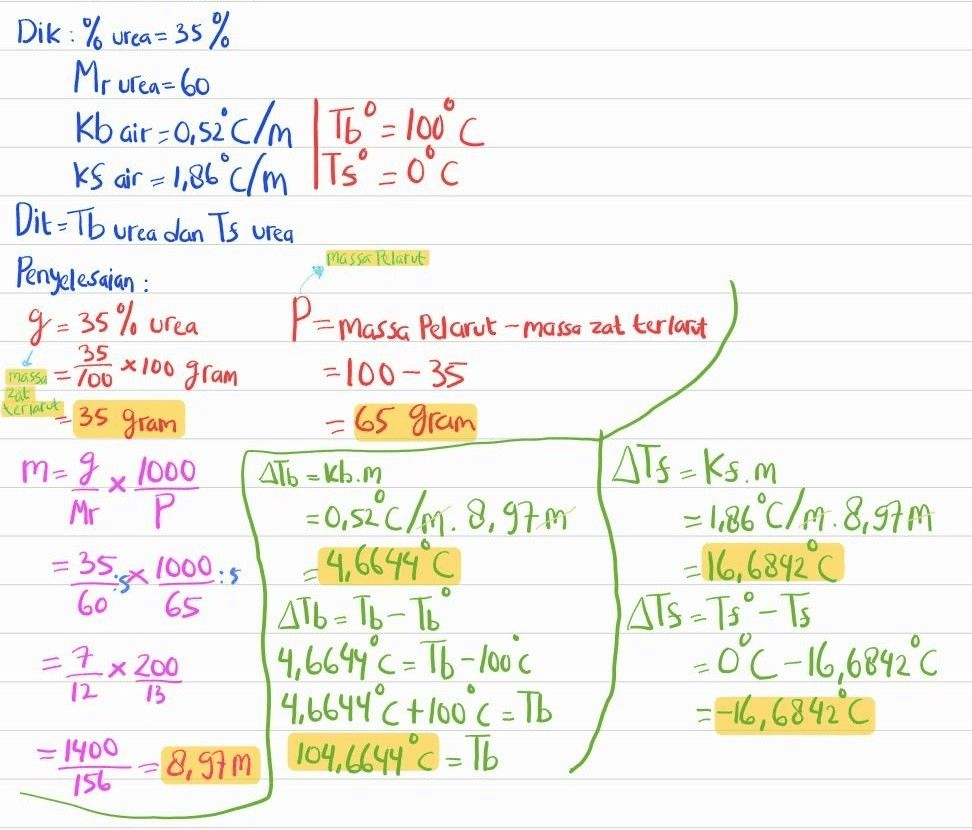 Dik : % urea = 35%
Mr urea = 60
Kb air = 0,52°C/m
Ks air = 1,86°C/m
Tb° = 100°C
Ts° = 0°C
Dit = Tb urea dan Ts urea
Penyelesaian :
g = 35% urea
massa zat terlarut
= 35/100 × 100 gram
= 35 gram
massa Pelarut
P = massa Pelarut - massa zat terlarut
= 100 - 35
= 65 gram
m = g/Mr × 1000/P
= 35/60 :5 × 1000/65 :5
= 7/12 × 200/13
= 1400/156 = 8,97 m
ΔTb = Kb.m
= 0,52°C/m . 8,97 m
= 4,6644°C
ΔTb = Tb - Tb°
4,6644°C = Tb - 100°C
4,6644°C + 100°C = Tb
104,6644°C = Tb
ΔTf = Kf.m
= 1,86°C/m . 8,97 m
= 16,6842°C
ΔTf = Tf° - Tf
= 0°C - 16,6842°C
= -16,6842°C